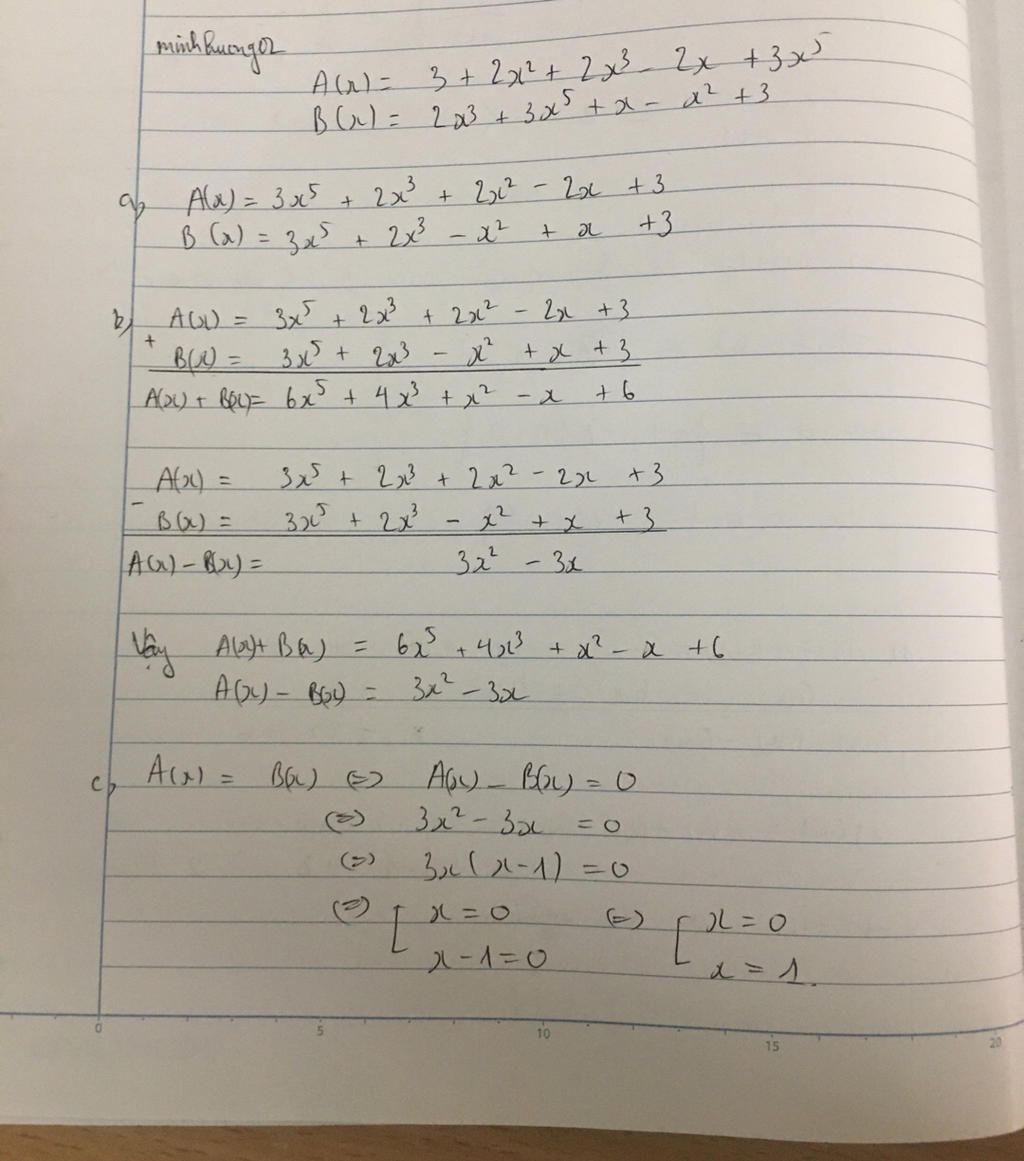 minhhuong02
A(x) = 3 + 2x² + 2x³ - 2x + 3x⁵
B(x) = 2x³ + 3x⁵ + x - x² + 3
a) A(x) = 3x⁵ + 2x³ + 2x² - 2x + 3
B(x) = 3x⁵ + 2x³ - x² + x + 3
b) A(x) = 3x⁵ + 2x³ + 2x² - 2x + 3
+ B(x) = 3x⁵ + 2x³ - x² + x + 3
A(x) + B(x) = 6x⁵ + 4x³ + x² - x + 6
A(x) = 3x⁵ + 2x³ + 2x² - 2x + 3
- B(x) = 3x⁵ + 2x³ - x² + x + 3
A(x) - B(x) = 3x² - 3x
Vậy A(x) + B(x) = 6x⁵ + 4x³ + x² - x + 6
A(x) - B(x) = 3x² - 3x
c) A(x) = B(x) (=) A(x) - B(x) = 0
(=) 3x² - 3x = 0
(=) 3x(x - 1) = 0
(=) [ x = 0 (=) [ x = 0
x - 1 = 0 x = 1.
0 5 10 15 20